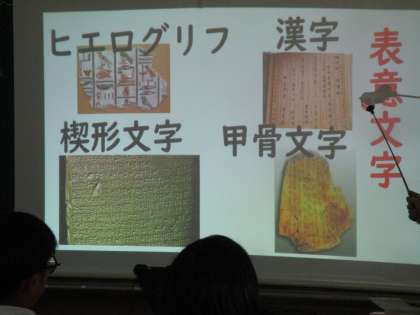 ヒエログリフ
漢字
楔形文字
甲骨文字
表意文字